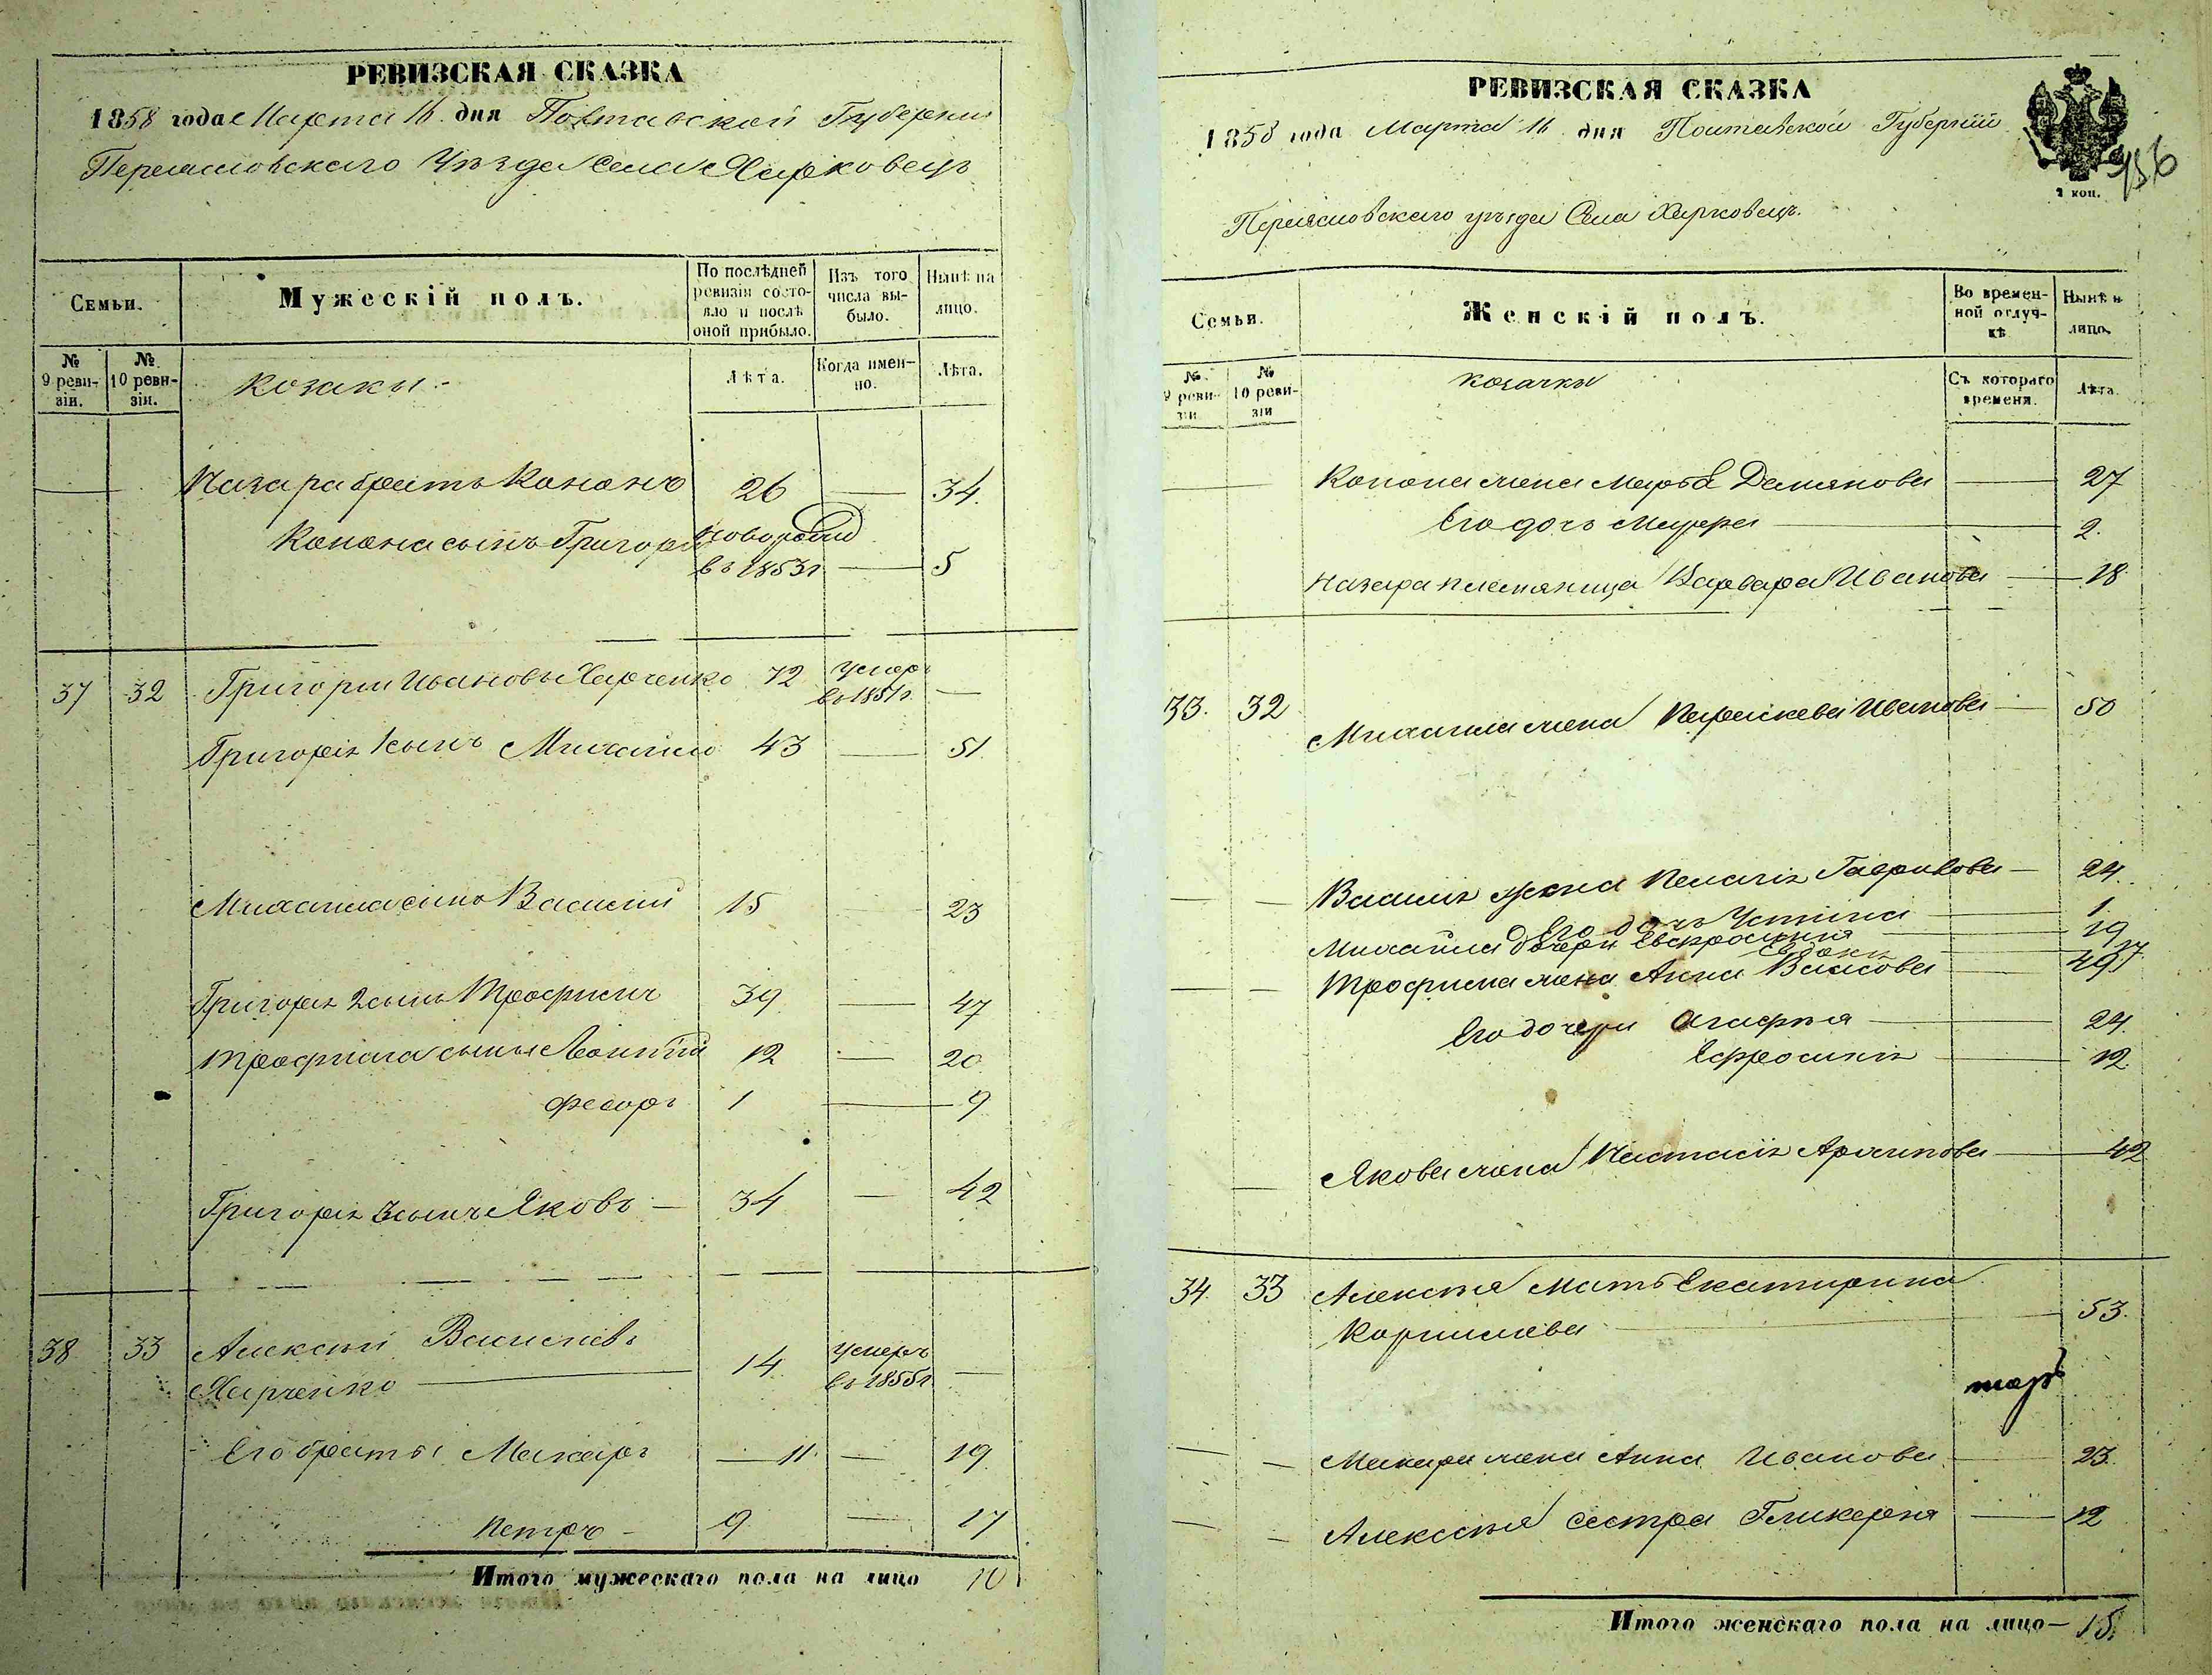 РЕВИЗСКАЯ СКАЗКА
1858 года Марта 16 дня Полтавской Губернии
Переяславского Уезда Села Харковецъ
Семьи.
Мужескій полъ.
По послѣдней ревизіи состояло и послѣ оной прибыло.
Изъ того числа выбыло.
Нынѣ на лицо.
№ 9 ревизіи.
№ 10 ревизіи.
Козаки
Лѣта.
Когда именно.
Лѣта.
Назара братъ Кононъ 26 — 34.
Конона сынъ Григорій новорожд
въ 1853г — 5
37 32 Григорій Ивановъ Харченко 72 умеръ въ 1851г. —
Григорія 1 сынъ Михайло 43 — 51.
Михайла сынъ Василий 15 — 23
Григорія 2 сынъ Трофимъ 39 — 47
Трофима сыны Леонтій 12 — 20
Федоръ 1 — 9
Григорія 3 сынъ Яковъ — 34 — 42
38 33 Алексѣй Васильевъ
Харченко — 14 умеръ въ 1855г. —
Его братья Макаръ — 11. — 19
Петръ — 9 — 17
Итого мужескаго пола на лицо 10
РЕВИЗСКАЯ СКАЗКА
1858 года Марта 16 дня Полтавской Губерніи
2 коп.
956
Переясловского уѣзда Села Харковецъ.
Семьи.
Женскій полъ.
Во временной отлучкѣ
Нынѣ н лицо.
№ 9 ревизіи
№ 10 ревизіи
Козачки
Съ котораго времени.
Лѣта.
Конона жена Марфа Демянова — 27
Его дочь Мавра — 2.
Назара племяница Варвара Иванова — 18
33. 32 Михаила жена Параскева Иванова — 50
Василія жена Пелагія Гаврилова — 24.
Его дочь Устина — 1.
Михайла дочери Евфросинія — 19
Евдокія — 17
Трофима жена Анна Власова — 49
Его дочери Агафия — 24.
Ефросинія — 12.
Якова жена Настасія Архипова — 42
34. 33 Алексѣя мать Екатирина
Корнилиева — 53.
Макара жена Анна Иванова — 23.
Алексѣя сестра Гликерія — 12
Итого женскаго пола на лицо — 15.